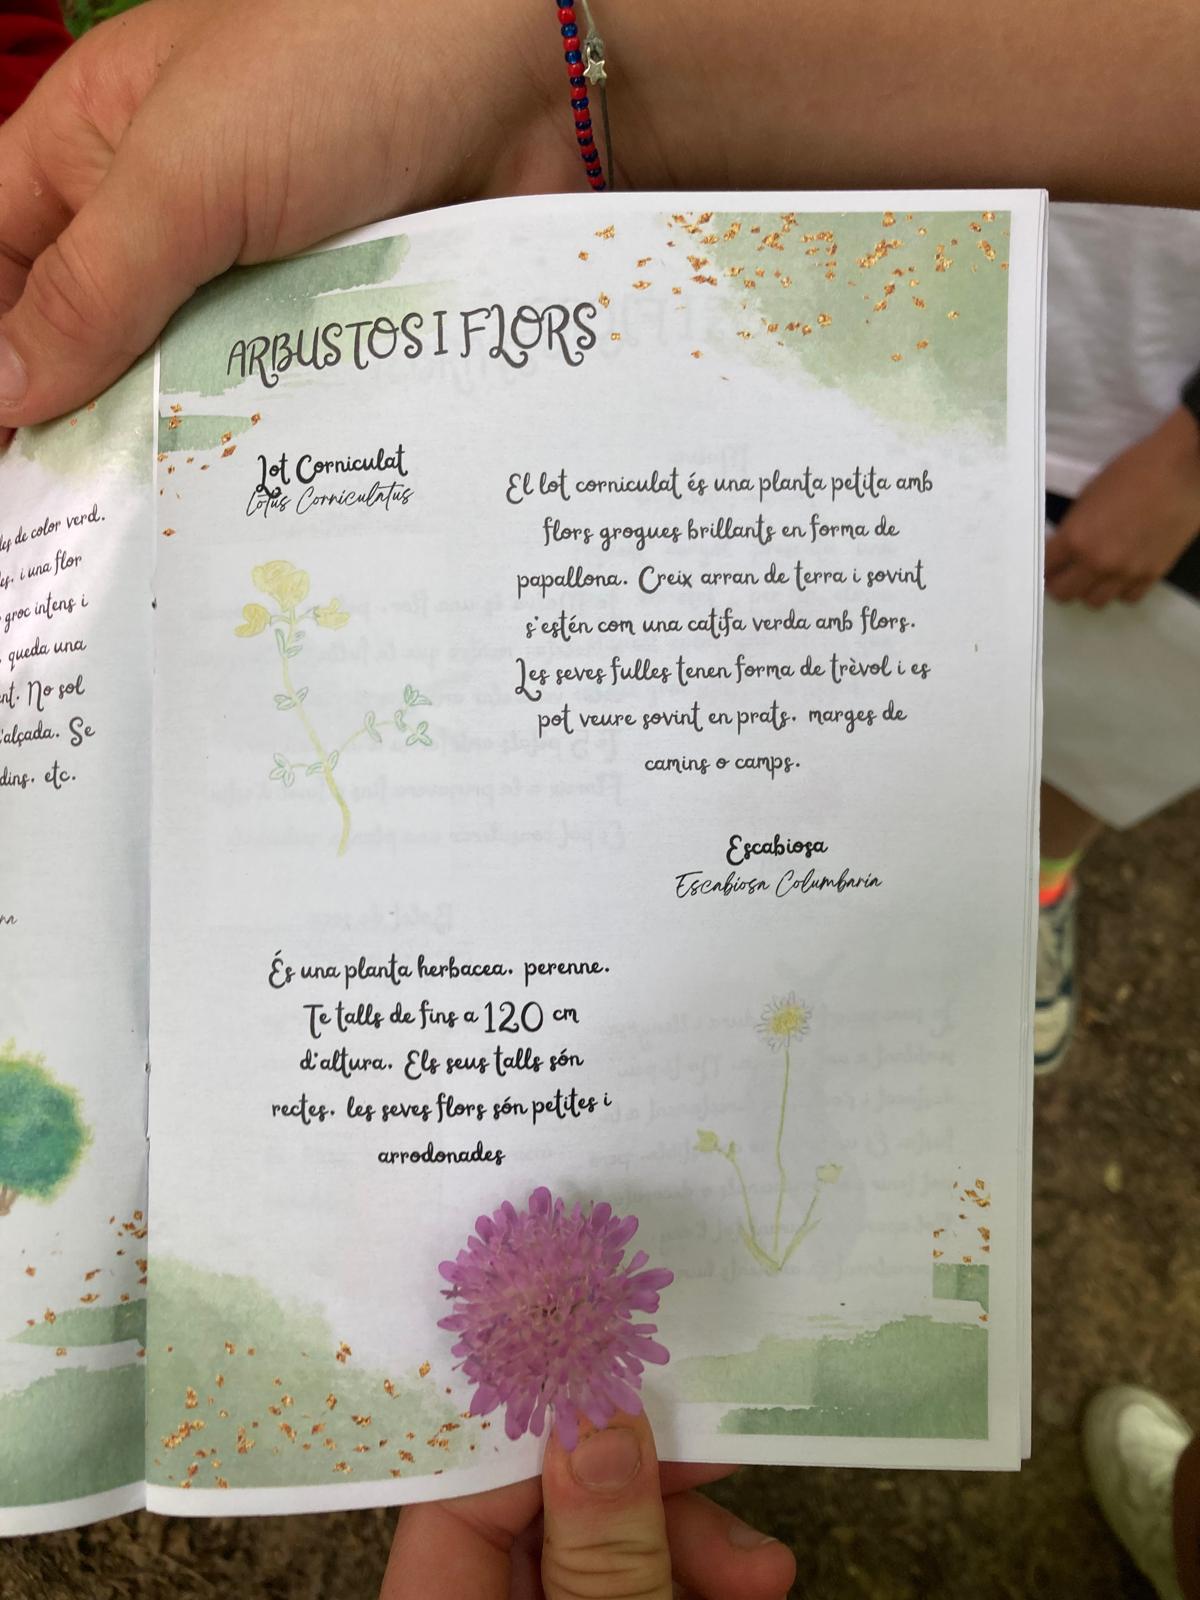 les de color verd.
i una flor
groc intens i
queda una
No sol
d'alçada. Se
etc.
ARBUSTOS I FLORS
Lot Corniculat
Lotus Corniculatus
El lot corniculat és una planta petita amb
flors grogues brillants en forma de
papallona. Creix arran de terra i sovint
s'estén com una catifa verda amb flors.
Les seves fulles tenen forma de trèvol i es
pot veure sovint en prats. marges de
camins o camps.
Escabiosa
Escabiosa Columbaria
És una planta herbacea. perenne.
Te talls de fins a 120 cm
d'altura. Els seus talls són
rectes. les seves flors són petites i
arrodonades